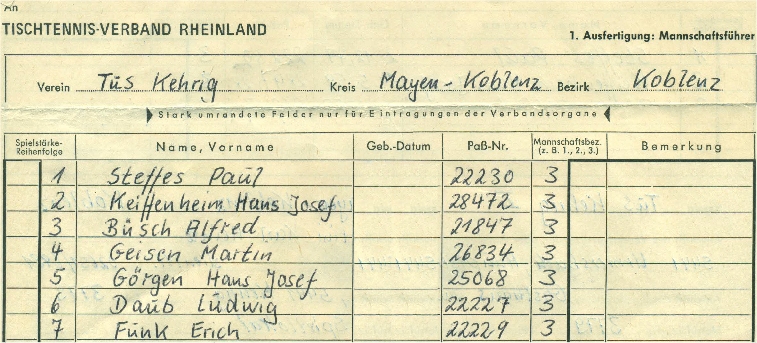 An
TISCHTENNIS-VERBAND RHEINLAND
1. Ausfertigung: Mannschaftsführer
Verein Tus Kehrig Kreis Mayen-Koblenz Bezirk Koblenz
Stark umrandete Felder nur für Eintragungen der Verbandsorgane
Spielstärke-Reihenfolge Name, Vorname Geb.-Datum Paß-Nr. Mannschaftsbez. (z. B. 1., 2., 3.) Bemerkung
1 Steffes Paul 22230 3
2 Keiffenheim Hans Josef 28472 3
3 Busch Alfred 21847 3
4 Geisen Martin 26834 3
5 Görgen Hans Josef 25068 3
6 Daub Ludwig 22227 3
7 Funk Erich 22229 3